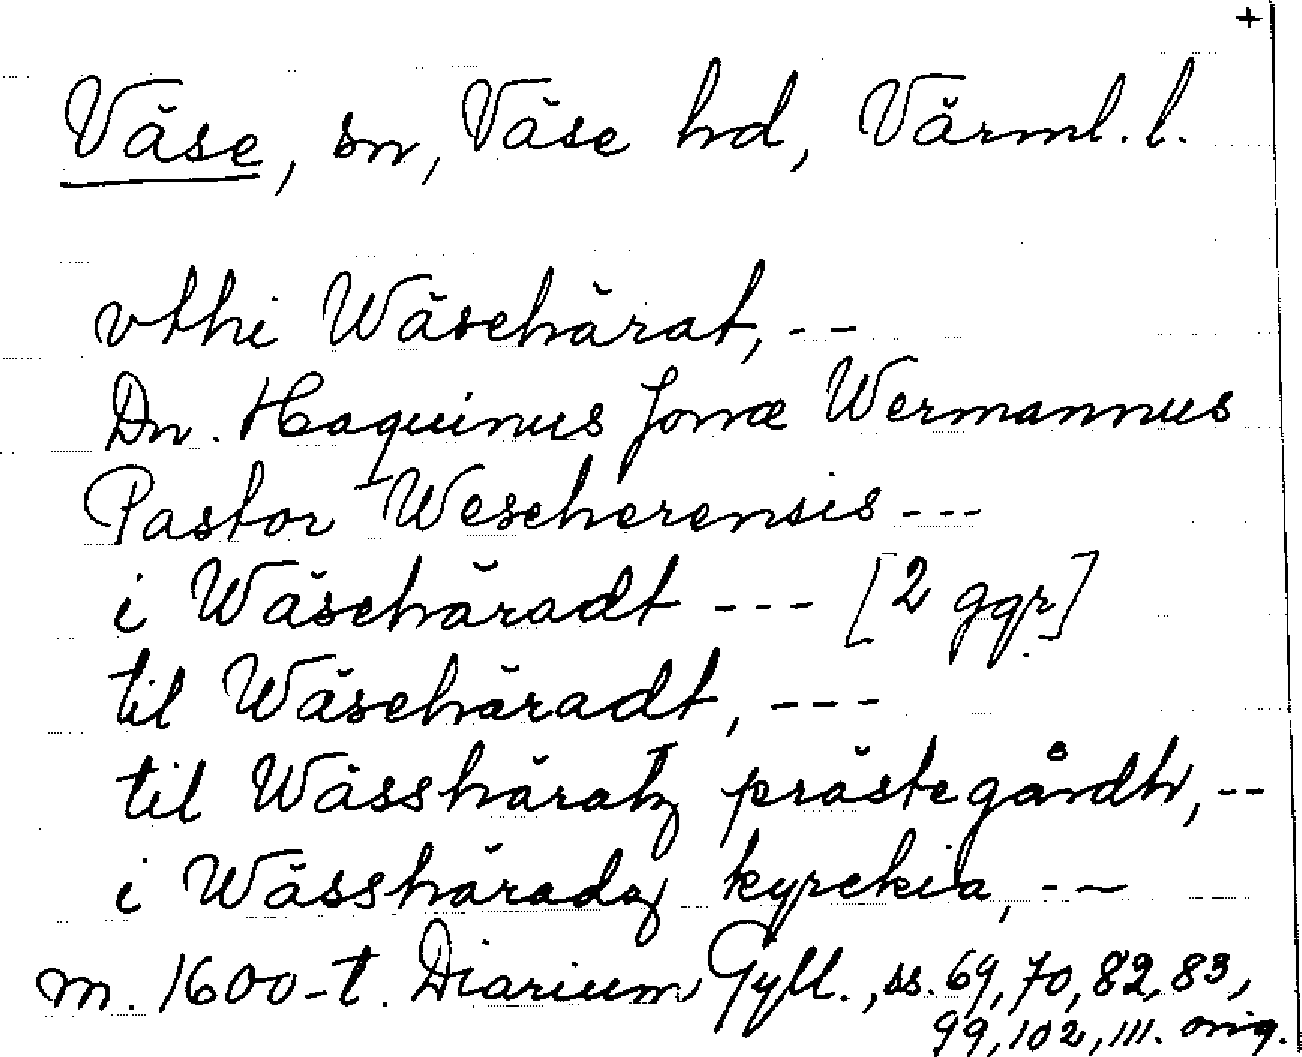 +
Väse, sn, Väse hd, Värml. l.
vthi Wäsehärat, --
Dn. Haquinus Jonæ Wermannus
Pastor Weseherensis ---
i Wäsehäradt --- [2 ggr]
til Wäsehäradt, ---
til Wässhäratz prästegårdh, --
i Wässhäradz kyrckia, --
m. 1600-t. Diarium Gyll., ss. 69, 70, 82, 83,
99, 102, 111. orig.